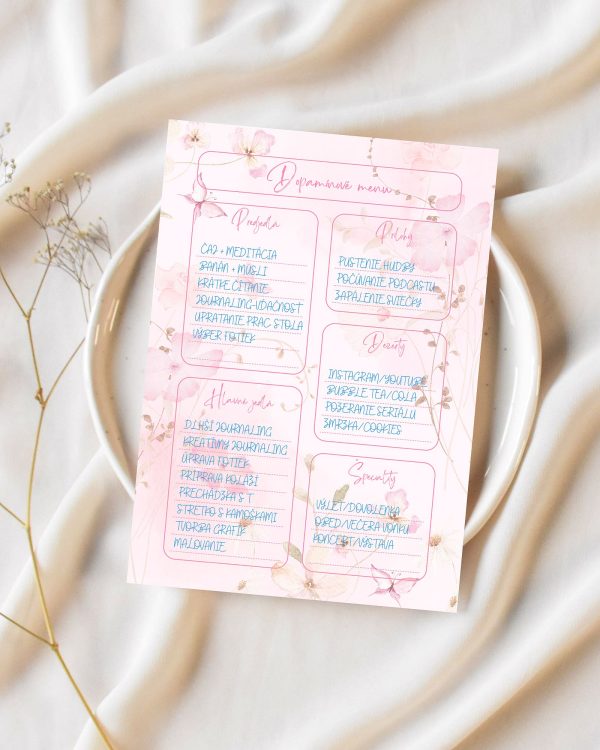 Dopamínové menu
Predjedlá
ČAJ + MEDITÁCIA
BANÁN + MÜSLI
KRÁTKE ČÍTANIE
JOURNALING-VĎAČNOSŤ
UPRATANIE PRAC. STOLA
VÝBER FOTIEK
Hlavné jedlá
DLHŠÍ JOURNALING
KREATÍVNY JOURNALING
ÚPRAVA FOTIEK
PRÍPRAVA KOLÁŽÍ
PRECHÁDZKA S T
STRETKO S KAMOŠKAMI
TVORBA GRAFIK
MAĽOVANIE
Prílohy
PUSTENIE HUDBY
POČÚVANIE PODCASTU
ZAPÁLENIE SVIEČKY
Dezerty
INSTAGRAM/YOUTUBE
BUBBLE TEA/COLA
POZERANIE SERIÁLU
ZMRZKA/COOKIES
Špeciality
VÝLET/DOVOLENKA
OBED/VEČERA VONKU
KONCERT/VÝSTAVA